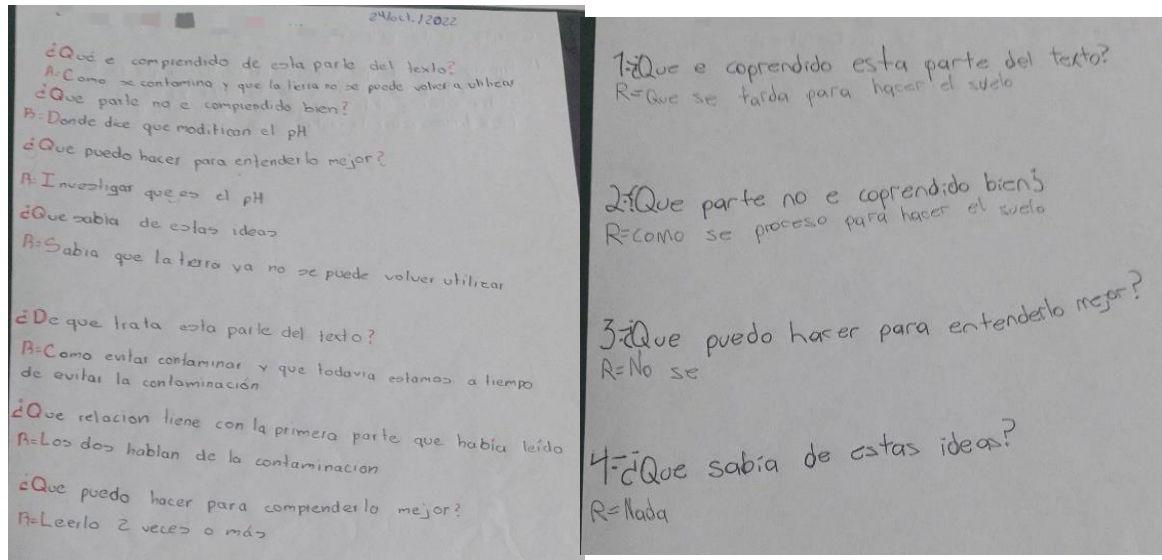 24/oct./2022
¿Qué e comprendido de esta parte del texto?
R:Como se contamina y que la tierra no se puede volver a utilizar
¿Que parte no e comprendido bien?
R:Donde dice que modifican el pH
¿Que puedo hacer para entenderlo mejor?
R:Investigar que es el pH
¿Que sabia de estas ideas
R=Sabia que la tierra ya no se puede volver utilizar
¿De que trata esta parte del texto?
R=Como evitar contaminar y que todavia estamos a tiempo
de evitar la contaminación
¿Que relacion tiene con la primera parte que había leído
R=Los dos hablan de la contaminacion
¿Que puedo hacer para comprenderlo mejor?
R=Leerlo 2 veces o más
1-¿Que e coprendido esta parte del texto?
R=Que se tarda para hacer el suelo
2-¿Que parte no e coprendido bien?
R=como se proceso para hacer el suelo
3-¿Que puedo hacer para entenderlo mejor?
R=No se
4-¿Que sabía de estas ideas?
R=Nada